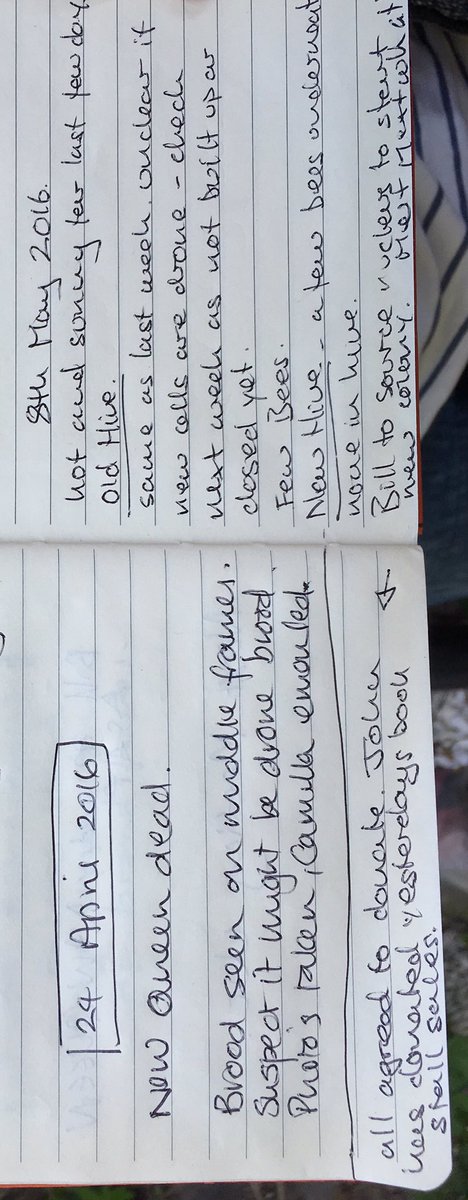 24 April 2016
New Queen dead.
Brood seen on middle frames.
Suspect it might be drone brood
Photo's taken, Camilla emailed.
all agreed to donate. John
has donated yesterdays book
stall sales.
8th May 2016.
hot and sunny few last few day
Old Hive.
same as last week, unclear if
new cells are drone - check
next week as not built up or
closed yet.
Few Bees.
New Hive - a few bees underneat
none in hive.
Bill to source nucleus to start
new colony. Meet Matt what